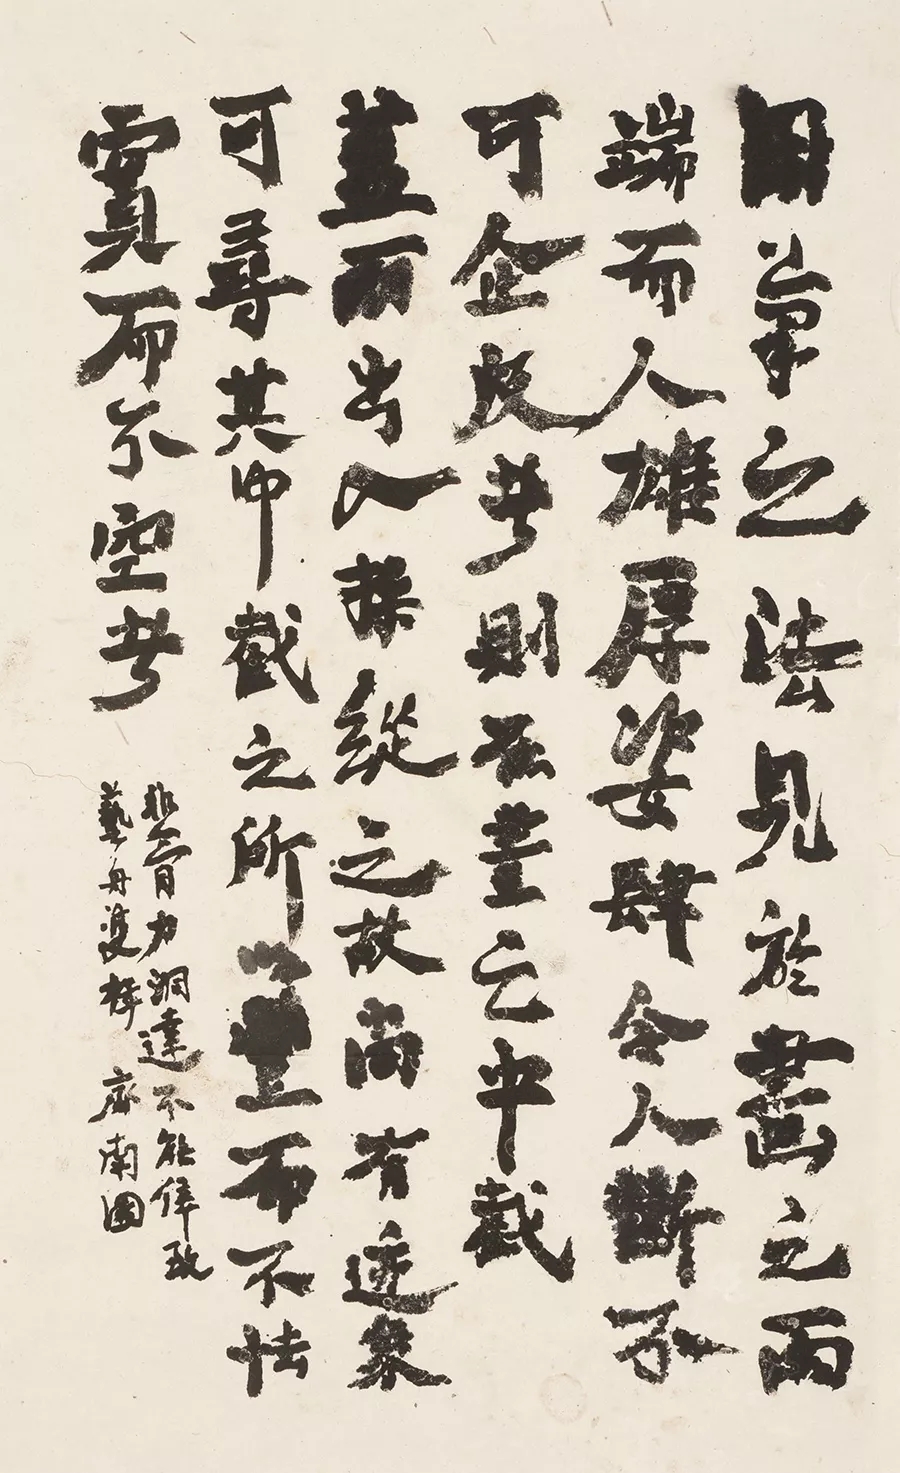 用筆之法見於畫之兩
端而人雄厚姿肆令人斷不
可企及者則在畫之中截
蓋兩出入操縱之故尚有迹象
可尋其中截之所以豐而不怯
實而不空者
非骨力洞達不能倖致
藝舟雙楫 齊南